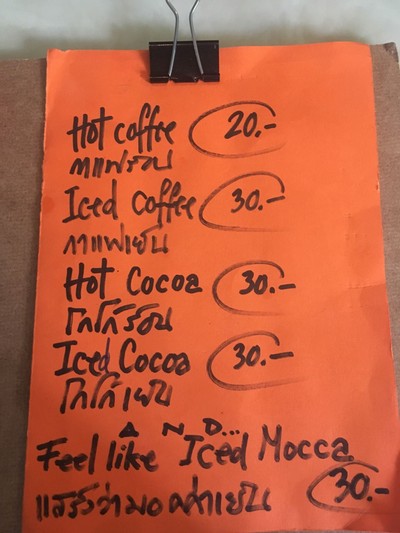 Hot coffee 20.-
กาแฟร้อน
Iced Coffee 30.-
กาแฟเย็น
Hot Cocoa 30.-
โกโก้ร้อน
Iced Cocoa 30.-
โกโก้เย็น
A N D...
Feel like Iced Mocca
มอคค่าเย็น 30.-